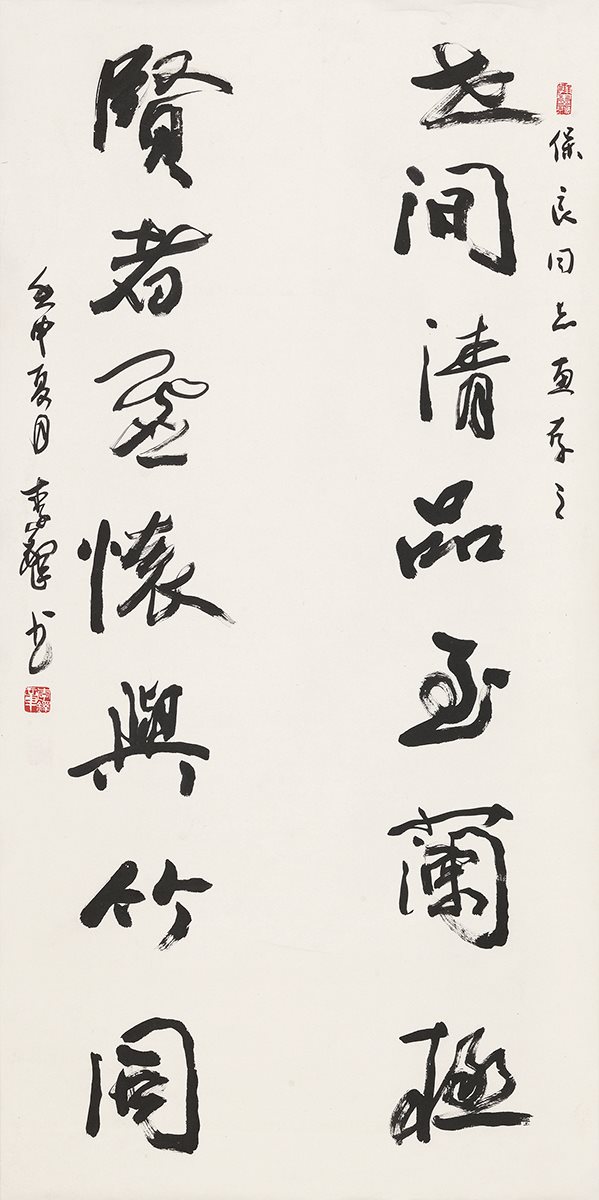 保良同志惠存之
世間清品至蘭極
賢者虛懷與竹同
壬申夏月 李鐸書